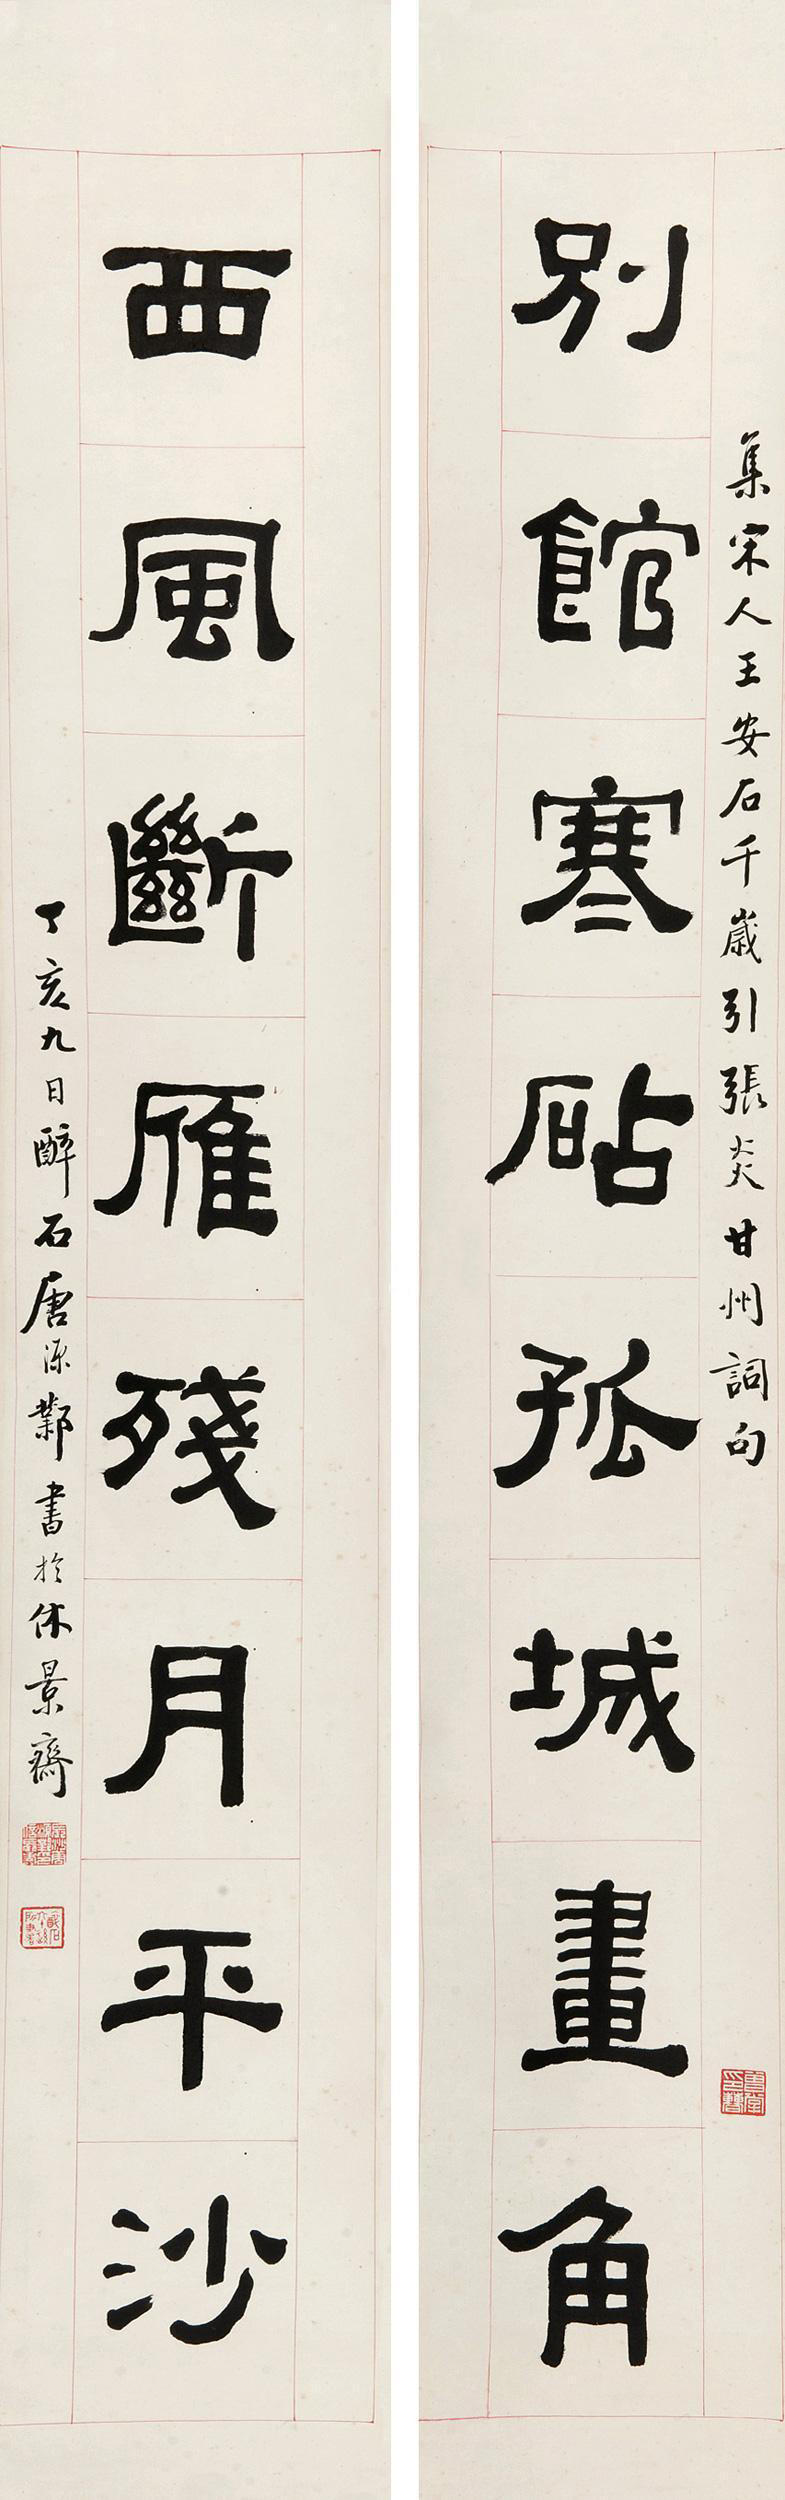 集宋人王安石千歲引張炎甘州詞句
別館寒砧孤城畫角
西風斷雁殘月平沙
丁亥九日醉石唐源鄴書於休景齋